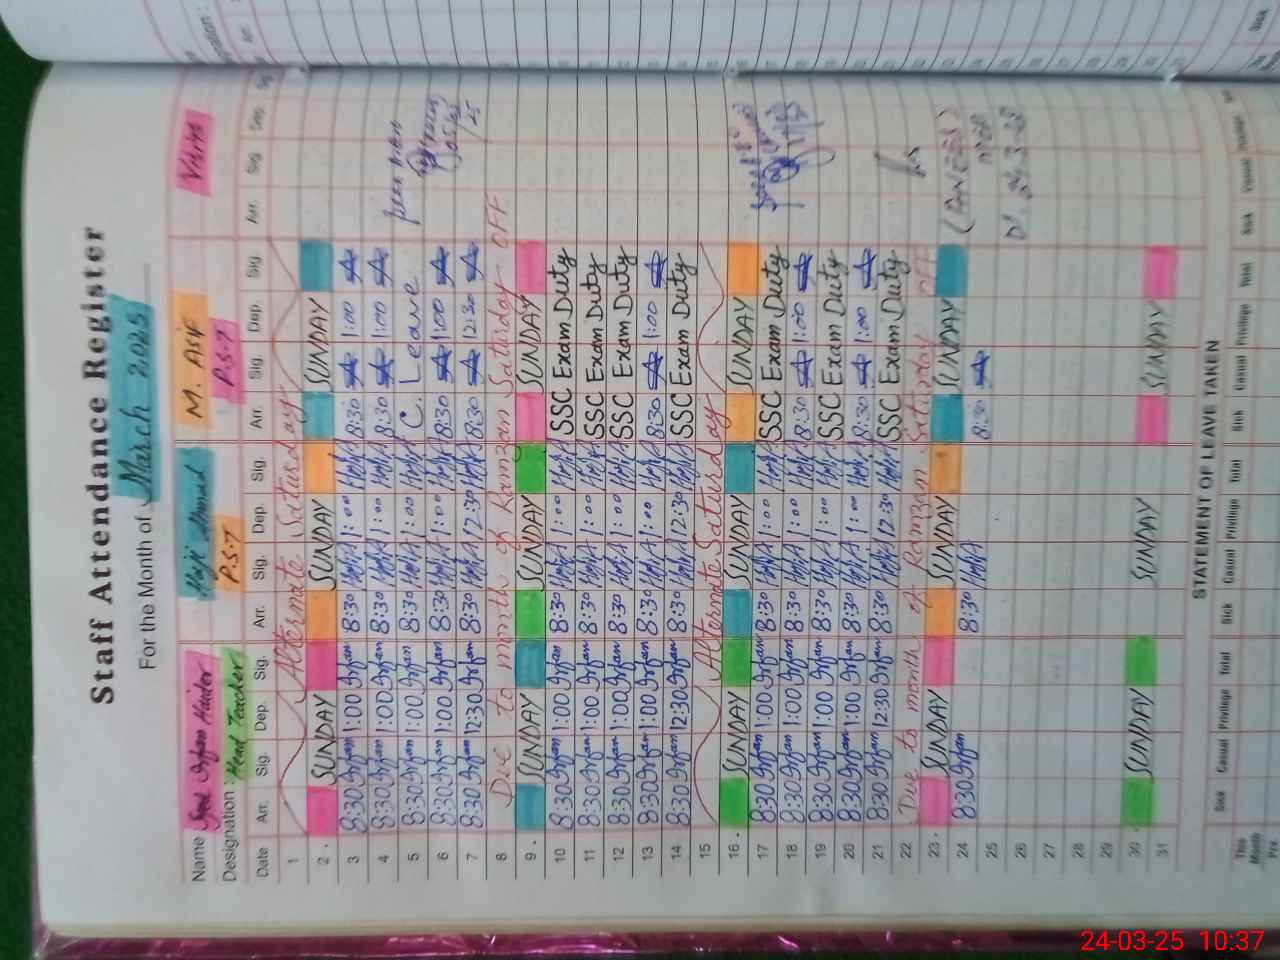 Staff Attendance Register
For the Month of March 2025
Name Syed Irfan Haider Haji Ahmad M. Asif Visits
Designation : Head Teacher P.S.T P.S.T
Date Arr. Sig. Dep. Sig. Arr. Sig. Dep. Sig. Arr. Sig. Dep. Sig. Arr. Sig. Dep.
1 Alternate Saturday
2. SUNDAY SUNDAY SUNDAY
3 8:30 Irfan 1:00 Irfan 8:30 1:00 8:30 1:00
4 8:30 Irfan 1:00 Irfan 8:30 1:00 8:30 1:00
5 8:30 Irfan 1:00 Irfan 8:30 1:00 C. Leave
6 8:30 Irfan 1:00 Irfan 8:30 1:00 8:30 1:00
7 8:30 Irfan 12:30 Irfan 8:30 12:30 8:30 12:30
8 Due to month of Ramzan Saturday OFF
9. SUNDAY SUNDAY SUNDAY
10 8:30 Irfan 1:00 Irfan 8:30 1:00 SSC Exam Duty
11 8:30 Irfan 1:00 Irfan 8:30 1:00 SSC Exam Duty
12 8:30 Irfan 1:00 Irfan 8:30 1:00 SSC Exam Duty
13 8:30 Irfan 1:00 Irfan 8:30 1:00 8:30 1:00
14 8:30 Irfan 12:30 Irfan 8:30 12:30 SSC Exam Duty
15 Alternate Saturday
16. SUNDAY SUNDAY SUNDAY
17 8:30 Irfan 1:00 Irfan 8:30 1:00 SSC Exam Duty
18 8:30 Irfan 1:00 Irfan 8:30 1:00 8:30 1:00
19 8:30 Irfan 1:00 Irfan 8:30 1:00 SSC Exam Duty
20 8:30 Irfan 1:00 Irfan 8:30 1:00 8:30 1:00
21 8:30 Irfan 12:30 Irfan 8:30 12:30 SSC Exam Duty
22 Due to month of Ramzan Saturday OFF
23. SUNDAY SUNDAY SUNDAY
24 8:30 Irfan 8:30 8:30
25
26
27
28
29
30 SUNDAY SUNDAY SUNDAY
31
STATEMENT OF LEAVE TAKEN
Sick Casual Privilege Total Sick Casual Privilege Total Sick Casual Privilege Total Sick Casual
This Month
24-03-25 10:37